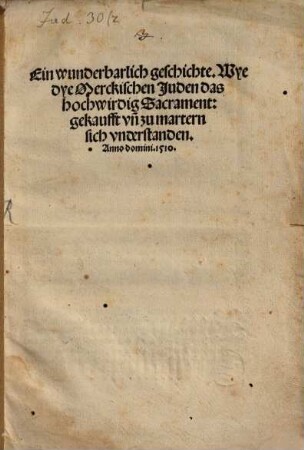 Jud. 30/2
Ein wunderbarlich geschichte. Wye
dye Merckischen Juden das
hochwirdig Sacrament:
gekaufft vñ zu martern
sich vnderstanden.
Anno domini. 1510.